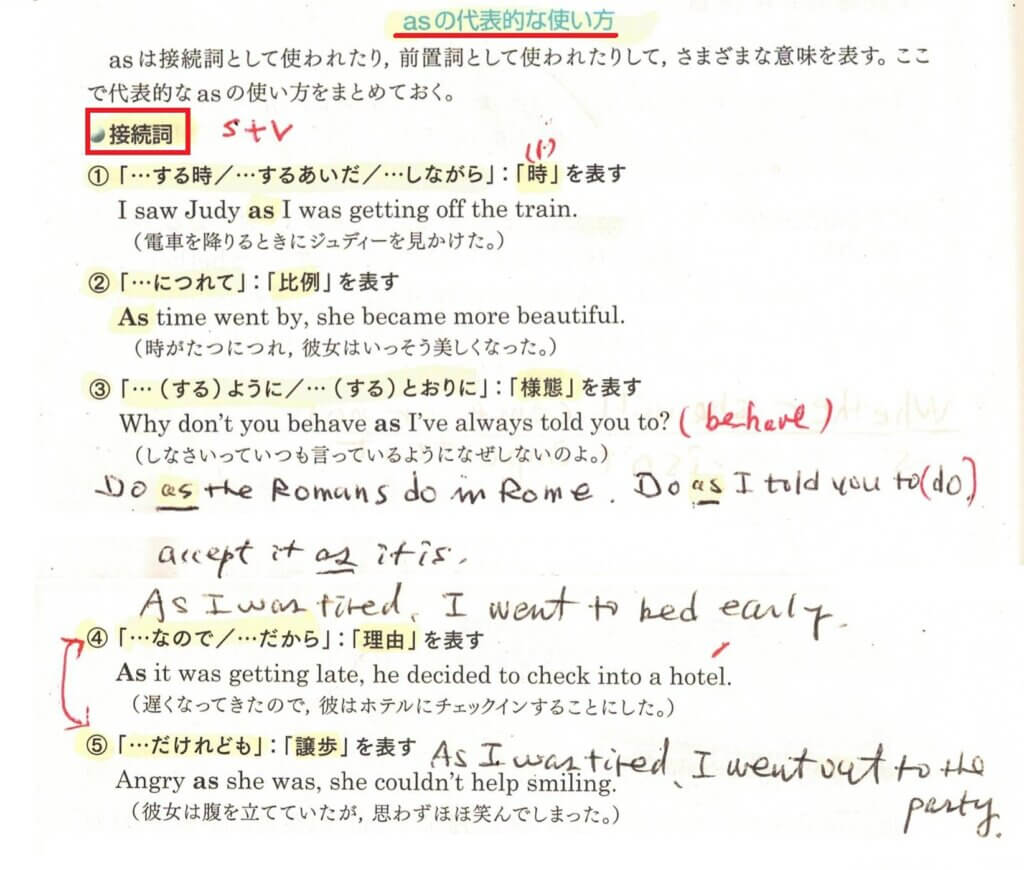 asの代表的な使い方
asは接続詞として使われたり，前置詞として使われたりして，さまざまな意味を表す。ここ
で代表的なasの使い方をまとめておく。
接続詞 S+V
①「…する時／…するあいだ／…しながら」：「時」を表す
I saw Judy as I was getting off the train.
（電車を降りるときにジュディーを見かけた。）
②「…につれて」：「比例」を表す
As time went by, she became more beautiful.
（時がたつにつれ，彼女はいっそう美しくなった。）
③「…（する）ように／…（する）とおりに」：「様態」を表す
Why don't you behave as I've always told you to? (behave)
（しなさいっていつも言っているようになぜしないのよ。）
Do as the Romans do in Rome. Do as I told you to (do.)
accept it as it is.
As I was tired, I went to bed early.
④「…なので／…だから」：「理由」を表す
As it was getting late, he decided to check into a hotel.
（遅くなってきたので，彼はホテルにチェックインすることにした。）
⑤「…だけれども」：「譲歩」を表す As I was tired, I went out to the
Angry as she was, she couldn't help smiling. party.
（彼女は腹を立てていたが，思わずほほ笑んでしまった。）